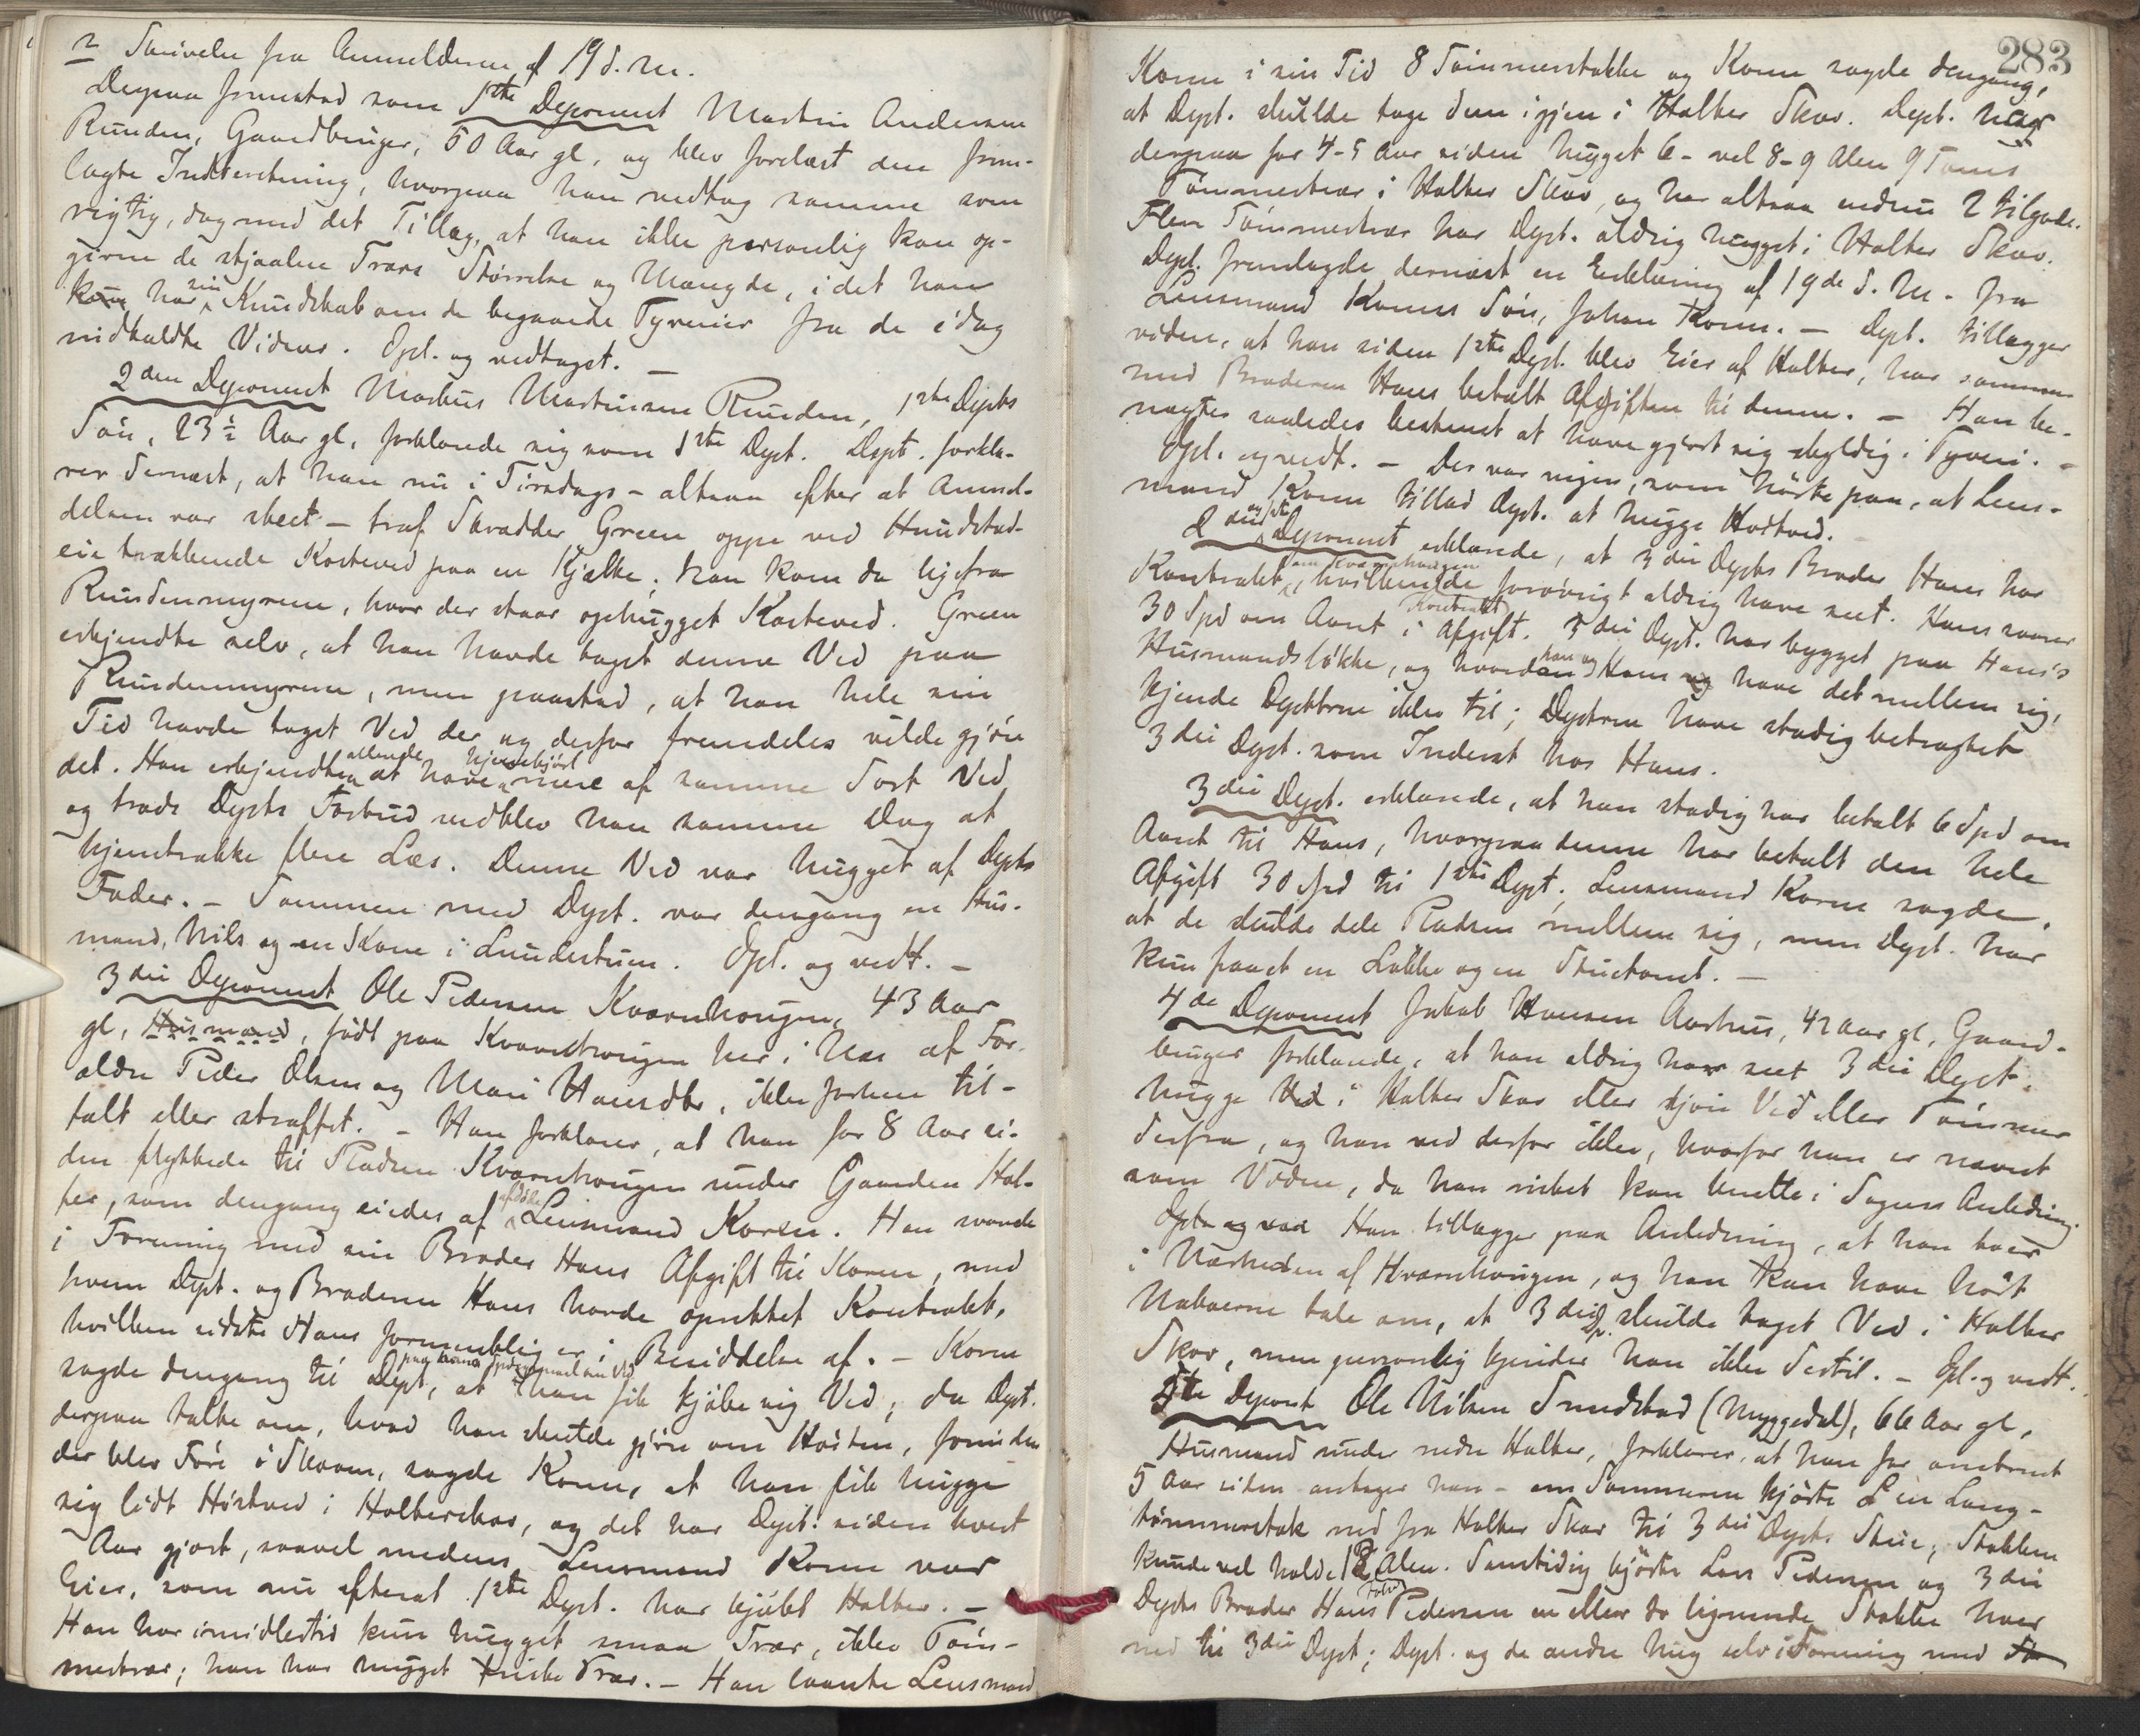 2 Skrivelse fra Anmelderen af 19 d. M.
Derpaa fremstod som 1ste Deponent Martin Andersen
Runden, Gaardbruger, 50 Aar gl, og blev forelæst den frem-
lagte Indberetning, hvorpaa han vedtog samme som
rigtig, dog med det Tillæg, at han ikke personlig kan op-
given de stjaalne Træers Størrelse og Mængde, i det han
kun har sin Kundskab om de begaaede Tyverier fra de idag
indkaldte Vidner. Opl. og vedtaget. —
2den Deponent Markus Martinsen Runden, 1ste Depts
Søn, 23½ Aar gl, forklarede sig som 1ste Dept. Dept. forkla-
rer dernæst, at han nu i Tirsdags – altsaa efter at Anmel-
delsen var skeet – traf Skrædder Green oppe ved Hundstad-
eie trækkende Kosteved paa en Kjælke; han kom da ligefra
Rundenmyrene, hvor der staar ophugget Kosteved. Green
erkjendte selv, at han havde taget denne Ved paa
Rundenmyrene, men paastod, at han hele sin
Tid havde taget Ved der og derfor fremdeles vilde gjøre
det. Han erkjendte allerede at have hjemkjørt mere af samme Sort Ved
og trods Depts Forbud vedblev han samme Dag at
hjemtrække flere Læs. Denne Ved var hugget af Depts
Fader. – Sammen med Dept. var dengang en Hus-
mand, Nils og en Kone i Lundestuen. Opl. og vedt. –
3die Deponent Ole Pedersen Kværnhougen, 43 Aar
gl, Husmand, født paa Kværnhougen her i Næs af For-
ældre Peder Olsen og Mari Hansdtr, ikke forhen til-
talt eller straffet. – Han forklarer, at han for 8 Aar si-
den flyttede til Pladsen Kværnhougen under Gaarden Hal-
ker, som dengang eiedes af afdøde Lensmand Koren. Han svarede
i Forening med sin Broder Hans Afgift til Koren, med
hvem Dept. og Broderen Hans havde oprettet Kontrakt,
hvilken sidste Hans formentlig er i Besiddelse af. – Koren
sagde dengang til Dept, paa hans Spørgsmaal om Ved at han fik kjøbe sig Ved; da Dept.
derpaa talte om, hvad han skulde gjøre om Høsten, forinden
der blev Føre i Skoven, sagde Koren, at han fik hugge
sig lidt Høstved i Halkerskov, og det har Dept. siden hvert
Aar gjort, saavel medens Lensmand Koren var
Eier, som nu efterat 1ste Dept. har kjøbt Halker. –
Han har imidlertid kun hugget smaa Træer, ikke Tøm-
mertræer; han har hugget friske Træer. – Han laante Lensmand
283
Koren i sin Tid 8 Tømmerstokke og Koren sagde dengang,
at Dept. skulde tage dem igjen i Halker Skov. Dept. har
derpaa for 4–5 Aar siden hugget 6 – vel 8–9 Alen 9 Toms
Tømmertræer i Halker Skov, og har altsaa endnu 2 tilgode.
Flere Tømmertræer har Dept. aldrig hugget i Halker Skov.
Dept. fremlagde dernæst en Erklæring af 19de d. M. fra
Lensmand Korens Søn, Johan Koren. – Dept. tillægger
viden, at han siden 1ste Dept. blev Eier af Halker, har sammen
med Broderen Hans betalt Afgiften til denne. – Han be-
nægter saaledes bestemt at have gjort sig skyldig i Tyveri. –
Opl. og vedt. – Der var ingen, som hørte paa, at Lens-
mand Koren tillod Dept. at hugge Høstved.
2den Deponent erklærede, at 3die Depts Broder Hans har
Kontrakt paa Kværnhougen, hvilken de forøvrigt aldrig have seet. Hans svarer
30 Spd om Aaret i Afgift. 3die Dept. har bygget paa Hans's
Husmandsløkke, og hvordan han og Hans have det mellem sig,
kjende Depterne ikke til; Depterne have stadig betragtet
3die Dept. som Inderst hos Hans.
3die Dept. erklærede, at han stadig har betalt 6 Spd om
Aaret til Hans, hvorpaa denne har betalt den hele
Afgift 30 Spd til 1ste Dept. Lensmand Koren sagde,
at de skulde dele Pladsen mellem sig, men Dept. har
kun faaet en Løkke og en Stuetomt. –
4de Deponent Jakob Hansen Aarhus, 42 Aar gl, Gaard-
bruger forklarede, at han aldrig har seet 3die Dept.
hugge Ved i Halker Skov eller kjøre Ved eller Tømmer
derfra, og han ved derfor ikke, hvorfor han er nævnt
som Vidne, da han intet kan berette i Sagens Anledning.
Opl. og ved Han tillægger paa Anledning, at han boer
i Nærheden af Kværnhougen, og han kan have hørt
Naboerne tale om, at 3die Dp. skulde taget Ved i Halker
Skov, men personlig kjender han ikke dertil. – Opl. og vedt.
5te Depont Ole Nilsen Smedstad (Myggedal), 66 Aar gl,
Husmand under nedre Halker, forklarer, at han for omtrent
5 Aar siden antager han – om Sommeren kjørte en Lang-
tømmerstok ned fra Halker Skov til 3die Depts Stue; Stokken
kunde vel holde 12 Alen. Samtidig kjørte Lars Pedersen og 3die
Depts Broder Hans Pedersen en eller to lignende Stokke hver
ned til 3die Dept; Dept. og de andre hug selv i Forening med